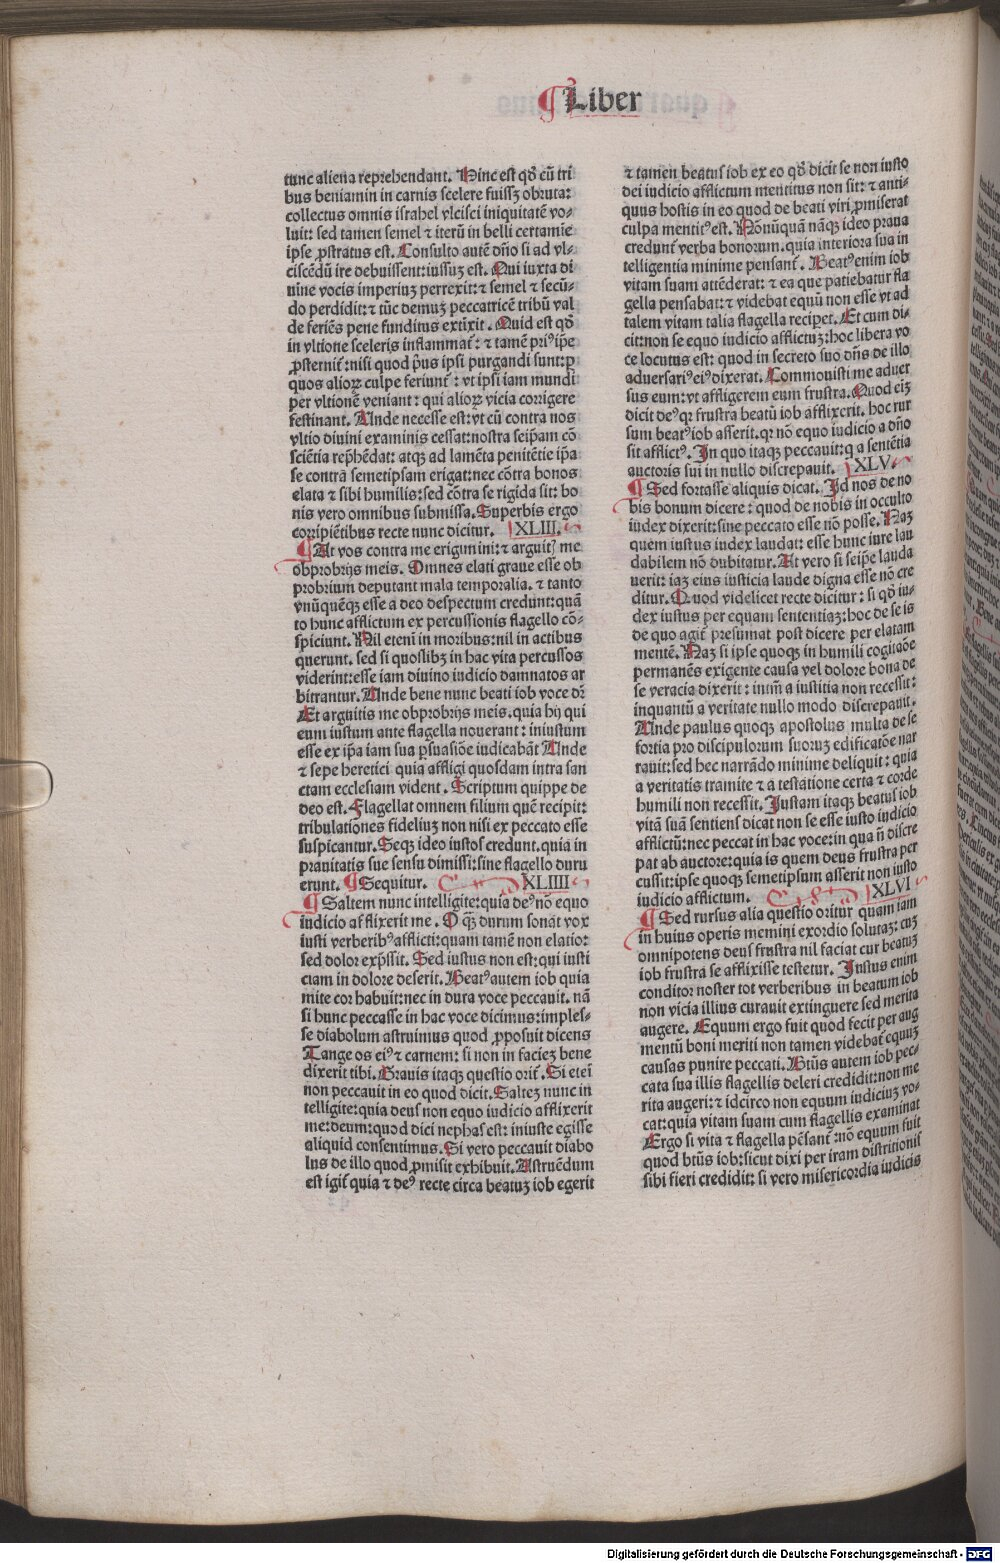 Liber
tunc aliena reprehendant. Hinc est qđ cū tri
bus beniamin in carnis scelere fuissꝫ obruta:
collectus omnis israhel vlcisci iniquitatē vo-
luit: sed tamen semel ⁊ iterū in belli certamie
ipse ꝓstratus est. Consulto autē dño si ad vl-
ciscēdū ire debuissent: iussuꝫ est. Qui iuxta di
uine vocis imperiuꝫ perrexit: ⁊ semel ⁊ secū-
do perdidit: ⁊ tūc demuꝫ peccatricē tribū val
de feriēs pene funditus extīxit. Quid est qđ
in vltione sceleris inflammat̄: ⁊ tamē priꝰ ip̄e
ꝓsternit̄: nisi quod p̄us ipsi purgandi sunt: ꝑ
quos alioꝝ culpe feriunt̄: vt ipsi iam mundi
per vltionē veniant: qui alioꝝ vicia corrigere
festinant. Unde necesse est: vt cū contra nos
vltio diuini examinis cessat: nostra seip̄am cō
sciētia rep̄hēdat: atqꝫ ad lamēta penitētie ip̄a
se contra semetipsam erigat: nec cōtra bonos
elata ⁊ sibi humilis: sed cōtra se rigida sit: bo
nis vero omnibus submissa. Superbis ergo
corripiētibus recte nunc dicitur. XLIII.
At vos contra me erigimini: ⁊ arguitꝭ me
obprobrijs meis. Omnes elati graue esse ob
probrium deputant mala temporalia. ⁊ tanto
vnūquēqꝫ esse a deo despectum credunt: quā
to hunc afflictum ex percussionis flagello cō-
spiciunt. Nil eteni in moribus: nil in actibus
querunt. sed si quoslibꝫ in hac vita percussos
viderint: esse iam diuino iudicio damnatos ar
bitrantur. Unde bene nunc beati iob voce dr̄
Et arguitis me obprobrijs meis. quia hij qui
eum iustum ante flagella nouerant: iniustum
esse ex ip̄a iam sua ꝑsuasiōe iudicabāt Unde
⁊ sepe heretici quia affligi quosdam intra san
ctam ecclesiam vident. Scriptum quippe de
deo est. Flagellat omnem filium quē recipit:
tribulationes fideliuꝫ non nisi ex peccato esse
suspicantur. Seqꝫ ideo iustos credunt. quia in
prauitatis sue sensu dimissi: sine flagello duru
erunt. Sequitur. XLIIII
Saltem nunc intelligite: quia deꝰ nō equo
iudicio afflixerit me. O q̄ꝫ durum sonāt vox
iusti verberibꝰ afflicti: quam tamē non elatio:
sed dolor exp̄ssit. Sed iustus non est: qui iusti
ciam in dolore deserit. Beatꝰ autem iob quia
mite cor habuit: nec in dura voce peccauit. nā
si hunc peccasse in hac voce dicimus: imples-
se diabolum astruimus quod ꝓposuit dicens
Tange os eiꝰ ⁊ carnem: si non in facieꝫ bene
dixerit tibi. Grauis itaqꝫ questio orit̄. Si eteni
non peccauit in eo quod dicit. Salteꝫ nunc in
telligite: quia deus non equo iudicio afflixerit
me: deum: quod dici nephas est: iniuste egisse
aliquid consentimus. Si vero peccauit diabo
lus de illo quod ꝓmisit exhibuit. Astruēdum
est igit̄ quia ⁊ deꝰ recte circa beatuꝫ iob egerit
⁊ tamen beatus iob ex eo qđ dicit se non iusto
dei iudicio afflictum mentitus non sit: ⁊ anti-
quus hostis in eo quod de beati viri ꝓmiserat
culpa mentitꝰ est. Nōnūquā nāqꝫ ideo praua
credunt̄ verba bonorum. quia interiora sua in
telligentia minime pensant̄. Beatꝰ enim iob
vitam suam attēderat: ⁊ ea que patiebatur fla
gella pensabat: ⁊ videbat equū non esse vt ad
talem vitam talia flagella reciperet. Et cum di-
cit: non se equo iudicio afflictuꝫ: hoc libera vo
ce locutus est: quod in secreto suo dn̄s de illo
aduersariꝰ eiꝰ dixerat. Commouisti me aduer
sus eum: vt affligerem eum frustra. Quod eiꝫ
dicit deꝰ qꝛ frustra beatū iob afflixerit. hoc rur
sum beatꝰ iob asserit. qꝛ nō equo iudicio a dño
sit afflictꝰ. In quo itaqꝫ peccauit: q a sentētia
auctoris sui in nullo discrepauit. XLV.
Sed fortasse aliquis dicat. Id nos de no
bis bonum dicere: quod de nobis in occulto
iudex dixerit: sine peccato esse nō posse. Naꝫ
quem iustus iudex laudat: esse hunc iure lau
dabilem nō dubitatur. At vero si seip̄e lauda
uerit: iaꝫ eius iusticia laude digna esse nō cre
ditur. Quod videlicet recte dicitur: si qđ iu-
dex iustus per equam sententiaꝫ: hoc de se is
de quo agit̄ presumat post dicere per elatam
mentē. Naꝫ si ipse quoqꝫ in humili cogitatōe
permanēs exigente causa vel dolore bona de
se veracia dixerit: inim̄ a iustitia non recessit:
inquantū a veritate nullo modo discrepauit.
Unde paulus quoqꝫ apostolus multa de se
fortia pro discipulorum suoruꝫ edificatōe nar
rauit: sed hec narrādo minime deliquit: quia
a veritatis tramite ⁊ a testatione certa ⁊ corde
humili non recessit. Justam itaqꝫ beatus iob
vitā suā sentiens dicat non se esse iusto iudicio
afflictū: nec peccat in hac voce: in qua ñ discre
pat ab auctore: quia is quem deus frustra per
cussit: ipse quoqꝫ semetipsum asserit non iusto
iudicio afflictum. XLVI
Sed rursus alia questio oritur quam iam
in huius operis memini exordio solutaꝫ: cuꝫ
omnipotens deus frustra nil faciat cur beatuꝫ
iob frustra se afflixisse testetur. Justus enim
conditor noster tot verberibus in beatum iob
non vicia illius curauit extinguere sed merita
augere. Equum ergo fuit quod fecit per aug
mentū boni meriti non tamen videbat̄ equuꝫ
causas punire peccati. Btūs autem iob pec-
cata sua illis flagellis deleri credidit: non me
rita augeri: ⁊ idcirco non equum iudiciuꝫ vo-
cat: quia vitam suam cum flagellis examinat
Ergo si vita ⁊ flagella pēsant̄: nō equum fuit
quod btūs iob: sicut dixi per iram districtionis
sibi fieri credidit: si vero misericordia iudicis
Digitalisierung gefördert durch die Deutsche Forschungsgemeinschaft - DFG